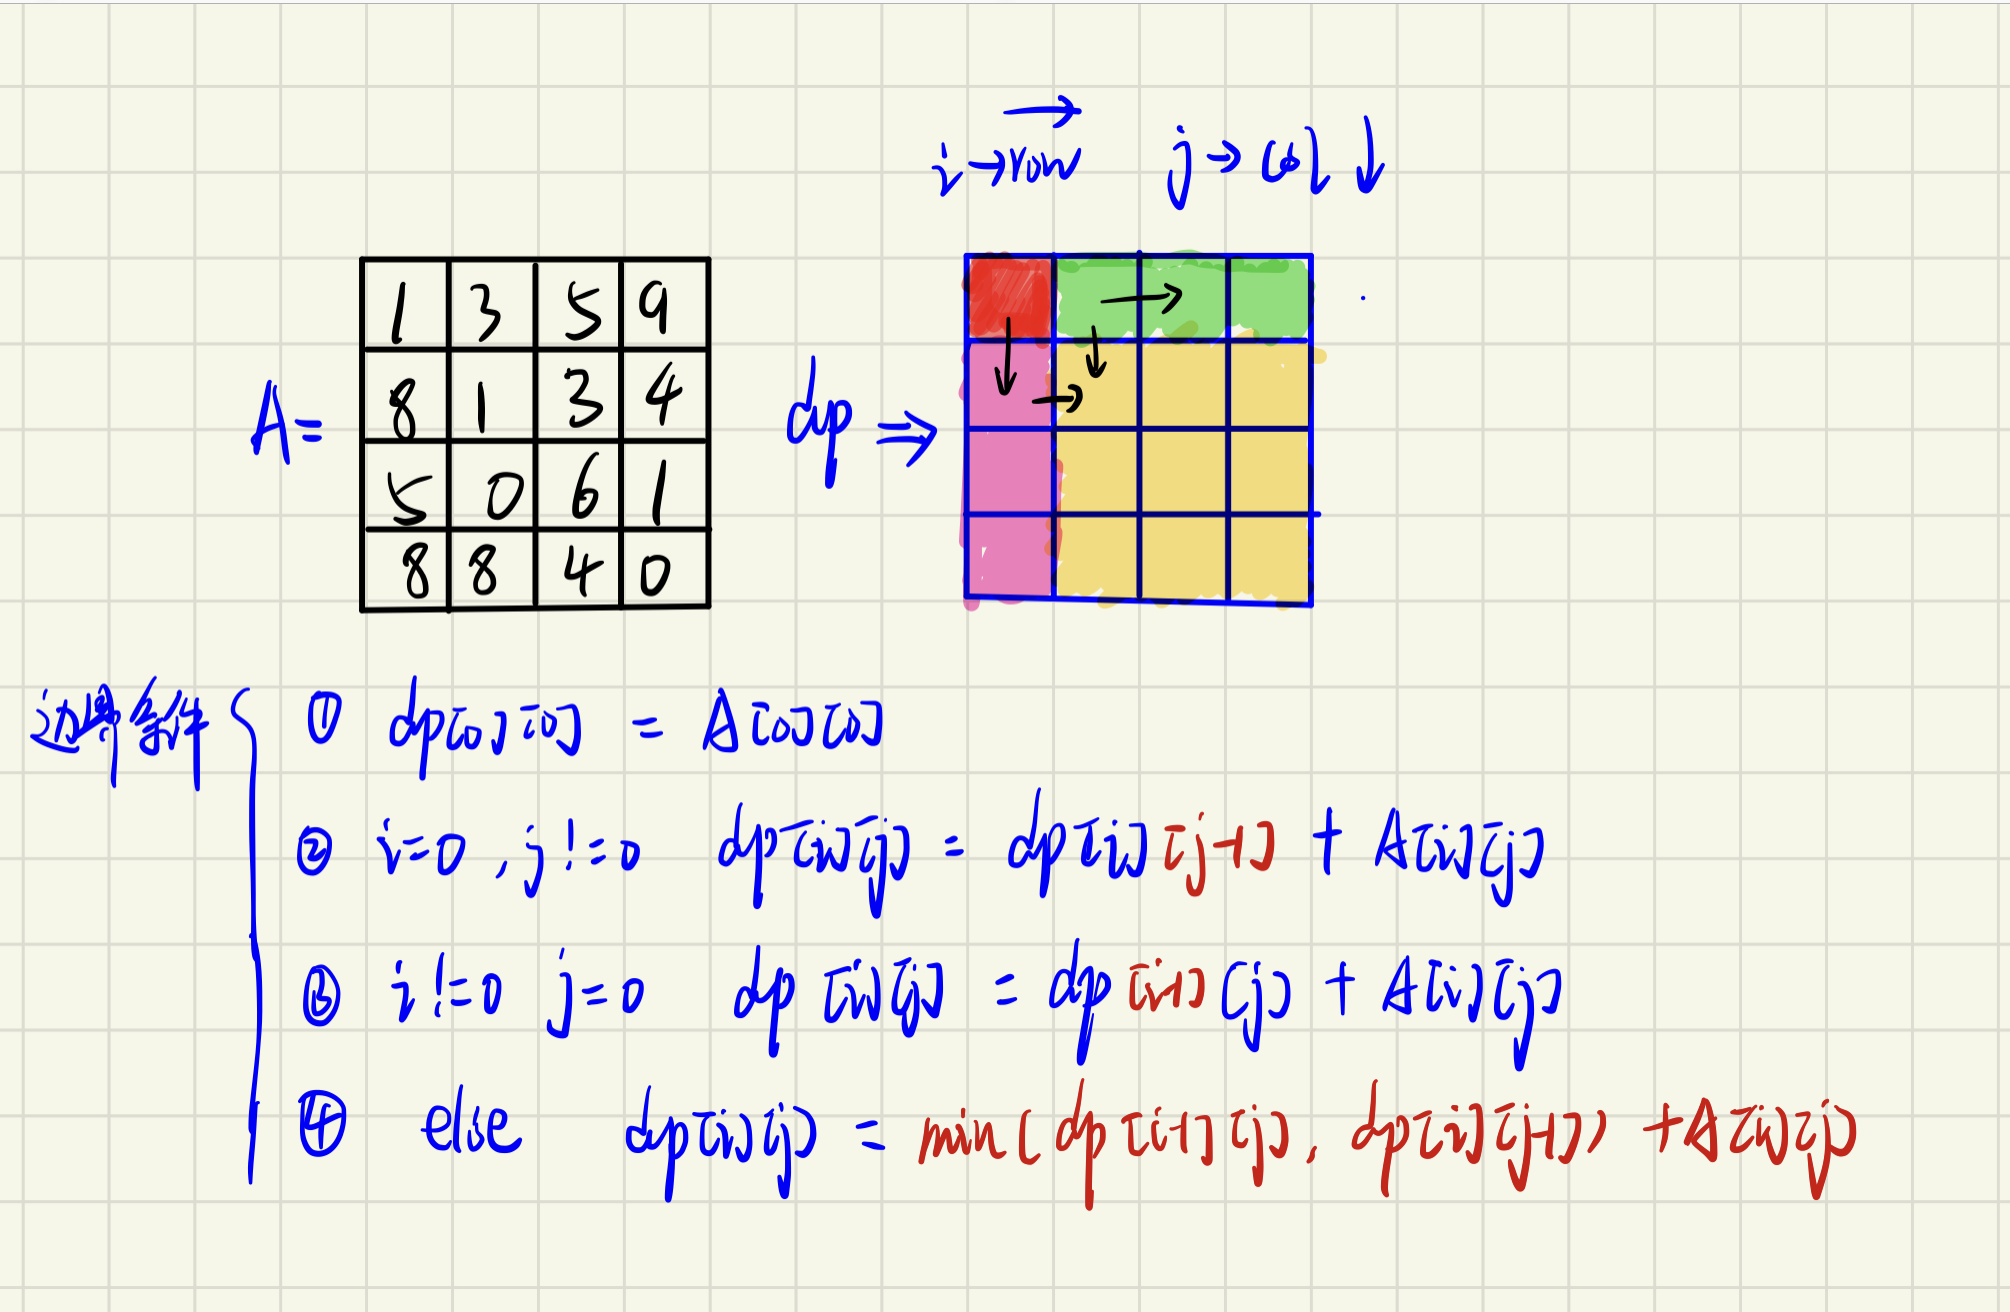 i→row j→col↓
A=
1 3 5 9
8 1 3 4
5 0 6 1
8 8 4 0
dp ⇒
边界条件
① dp[0][0] = A[0][0]
② i=0, j!=0 dp[i][j] = dp[i][j-1] + A[i][j]
③ i!=0 j=0 dp[i][j] = dp[i-1][j] + A[i][j]
④ else dp[i][j] = min(dp[i-1][j], dp[i][j-1]) + A[i][j]